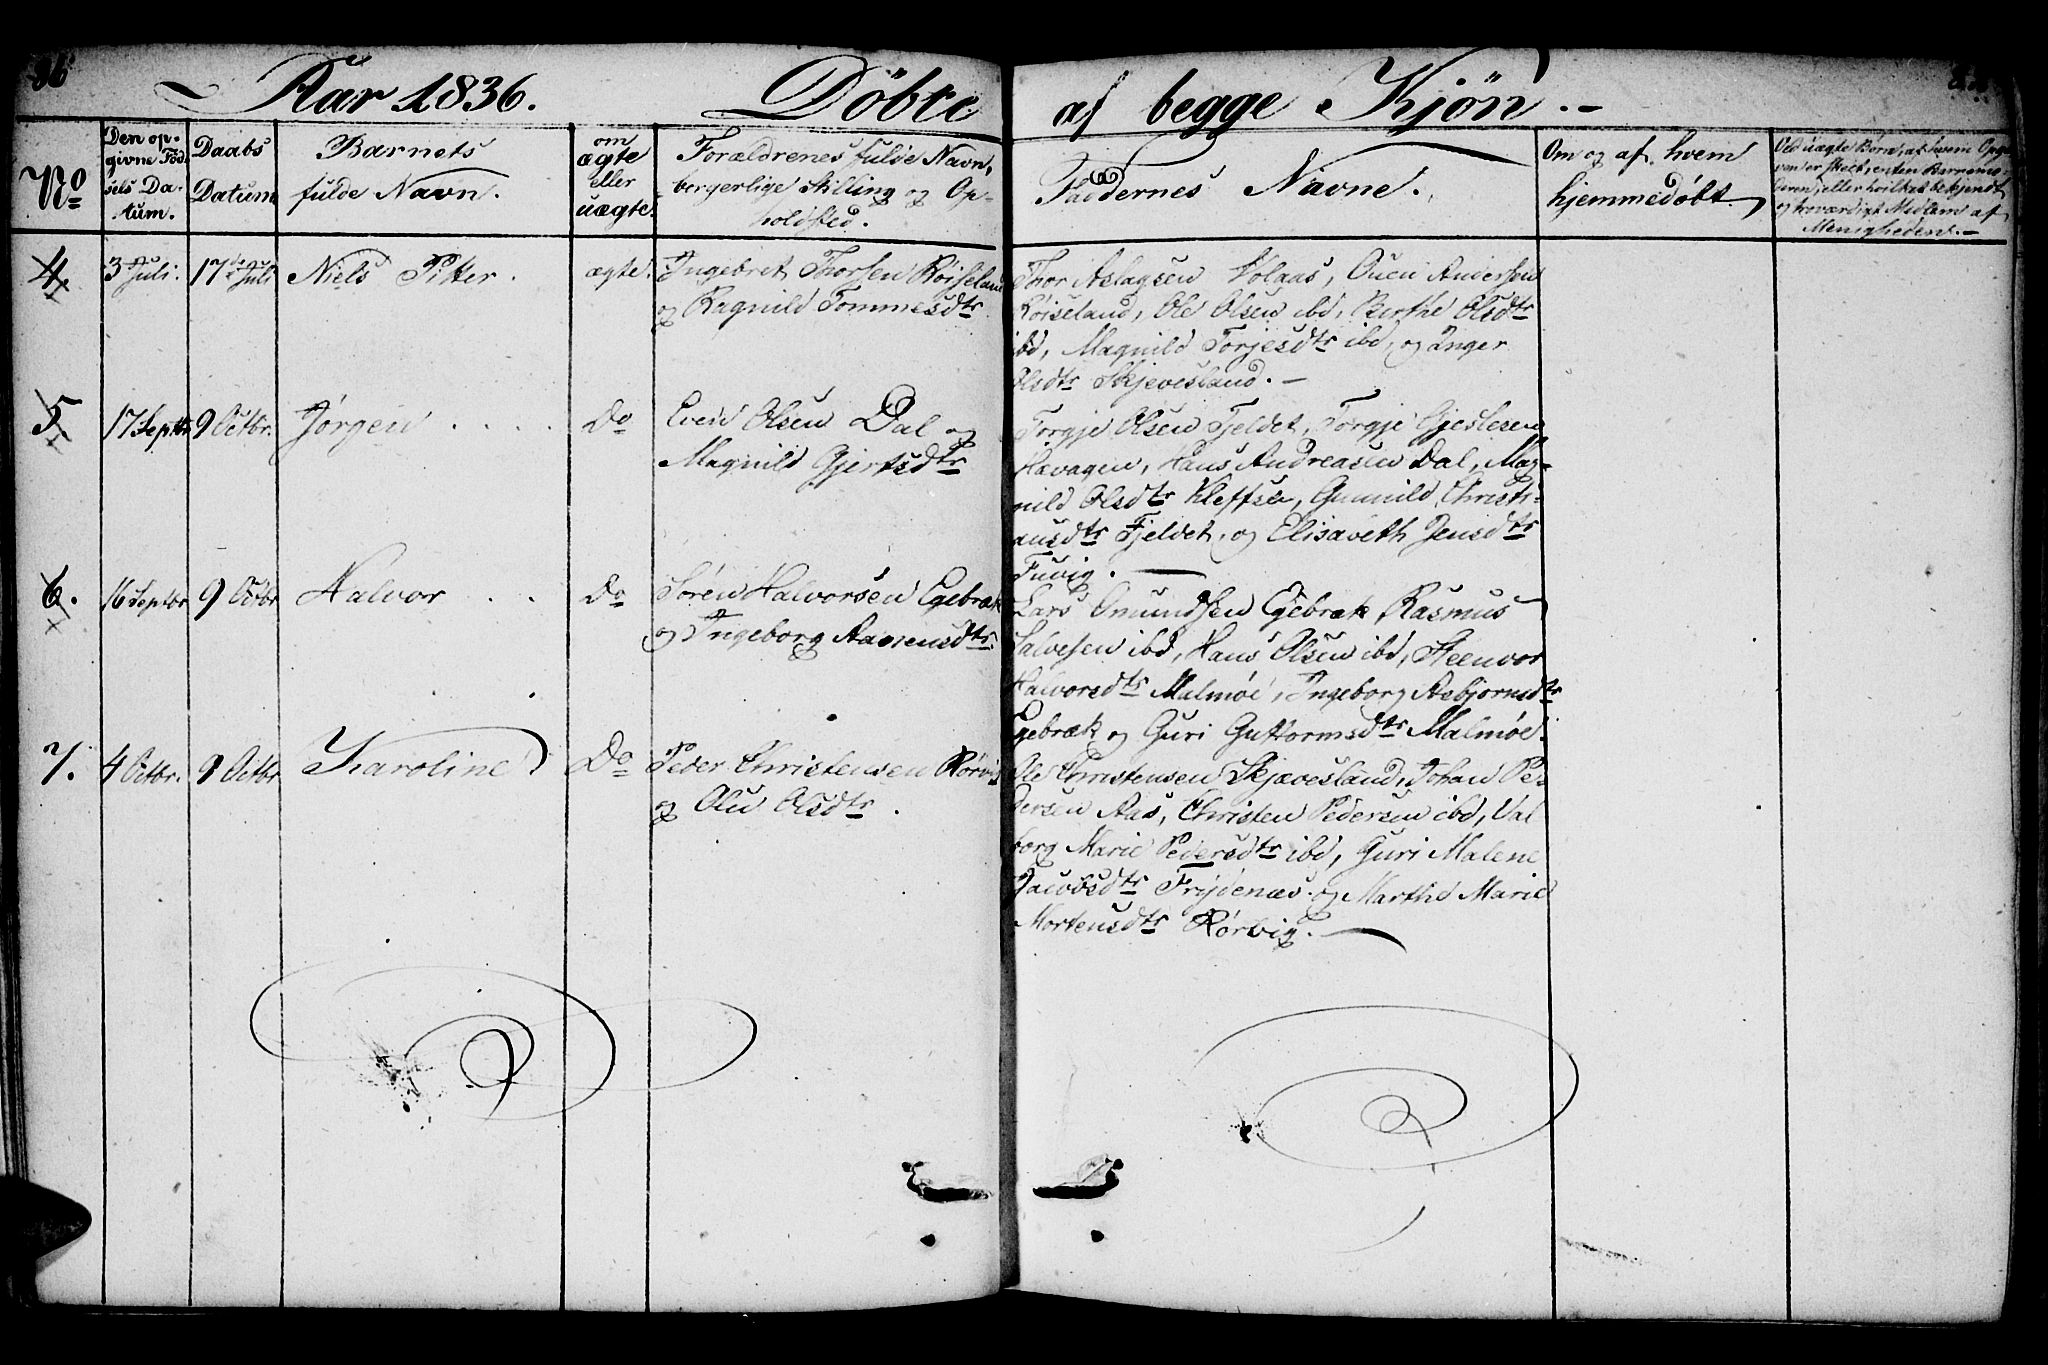 Aar 1836. Döbte af begge Kjön.
No
Den op-
givne Föd
sels Da-
tum.
Daabs
Datum
Barnets
fulde Navn.
om
ægte
eller
uægte.
Forældrenes fulde Navn,
bergerlige Stilling og Op-
holdsted.
Faddernes Navne.
Om og af hvem
hjemmedöbt.
Ved uægte Börn, af hvem Opgi
Menigheden.
4
3 Juli.
17de Juli
Niels Pitter.
ægte.
Ingebret Thorsen Röiseland
og Ragnild Tommesdtr
Thor Aslagsen Volaas, Ouen Andersen
Röiseland, Ole Olsen ibd, Berthe Olsdtr
ibd, Magnild Torjesdtr ibd, og Anger
Olsdtr Skjevesland.
5
17 Septbr
9 Octbr.
Jörgen
Do
Even Olsen Dal og
Magnild Gjertsdtr
Torgje Olsen Fjeldet, Torgje Gjeslesen
Havagen, Hans Andreasen Dal, Mag-
nild Olsdtr Kleffsle, Gunnild Christi-
ansdtr Fjeldet, og Elisaveth Jensdtr
Fuvig.
6.
16 Septbr
9 Octbr
Halvor
Do
Sören Halvorsen Egebræk
og Ingeborg Aanensdtr
Lars Omundsen Egebræk, Rasmus
Salvesen ibd, Hans Olsen ibd, Steenvor
Halvorsdtr Malmöe, Ingeborg Asbjornsdtr
Egebræk og Guri Guttormsdtr Malmöe.
7.
4 Octbr.
9 Octbr
Karoline
Do
Peder Christensen Rörvig
og Olu Olsdtr.
Ole Christensen Skjævesland, Johan Pe-
dersen Aas, Christen Pedersen ibd, Val
borg Marie Pedersdtr ibd, Guri Malene
Jacobsdtr Frydenæs og Marthe Marie
Mortensdtr Rörvig.